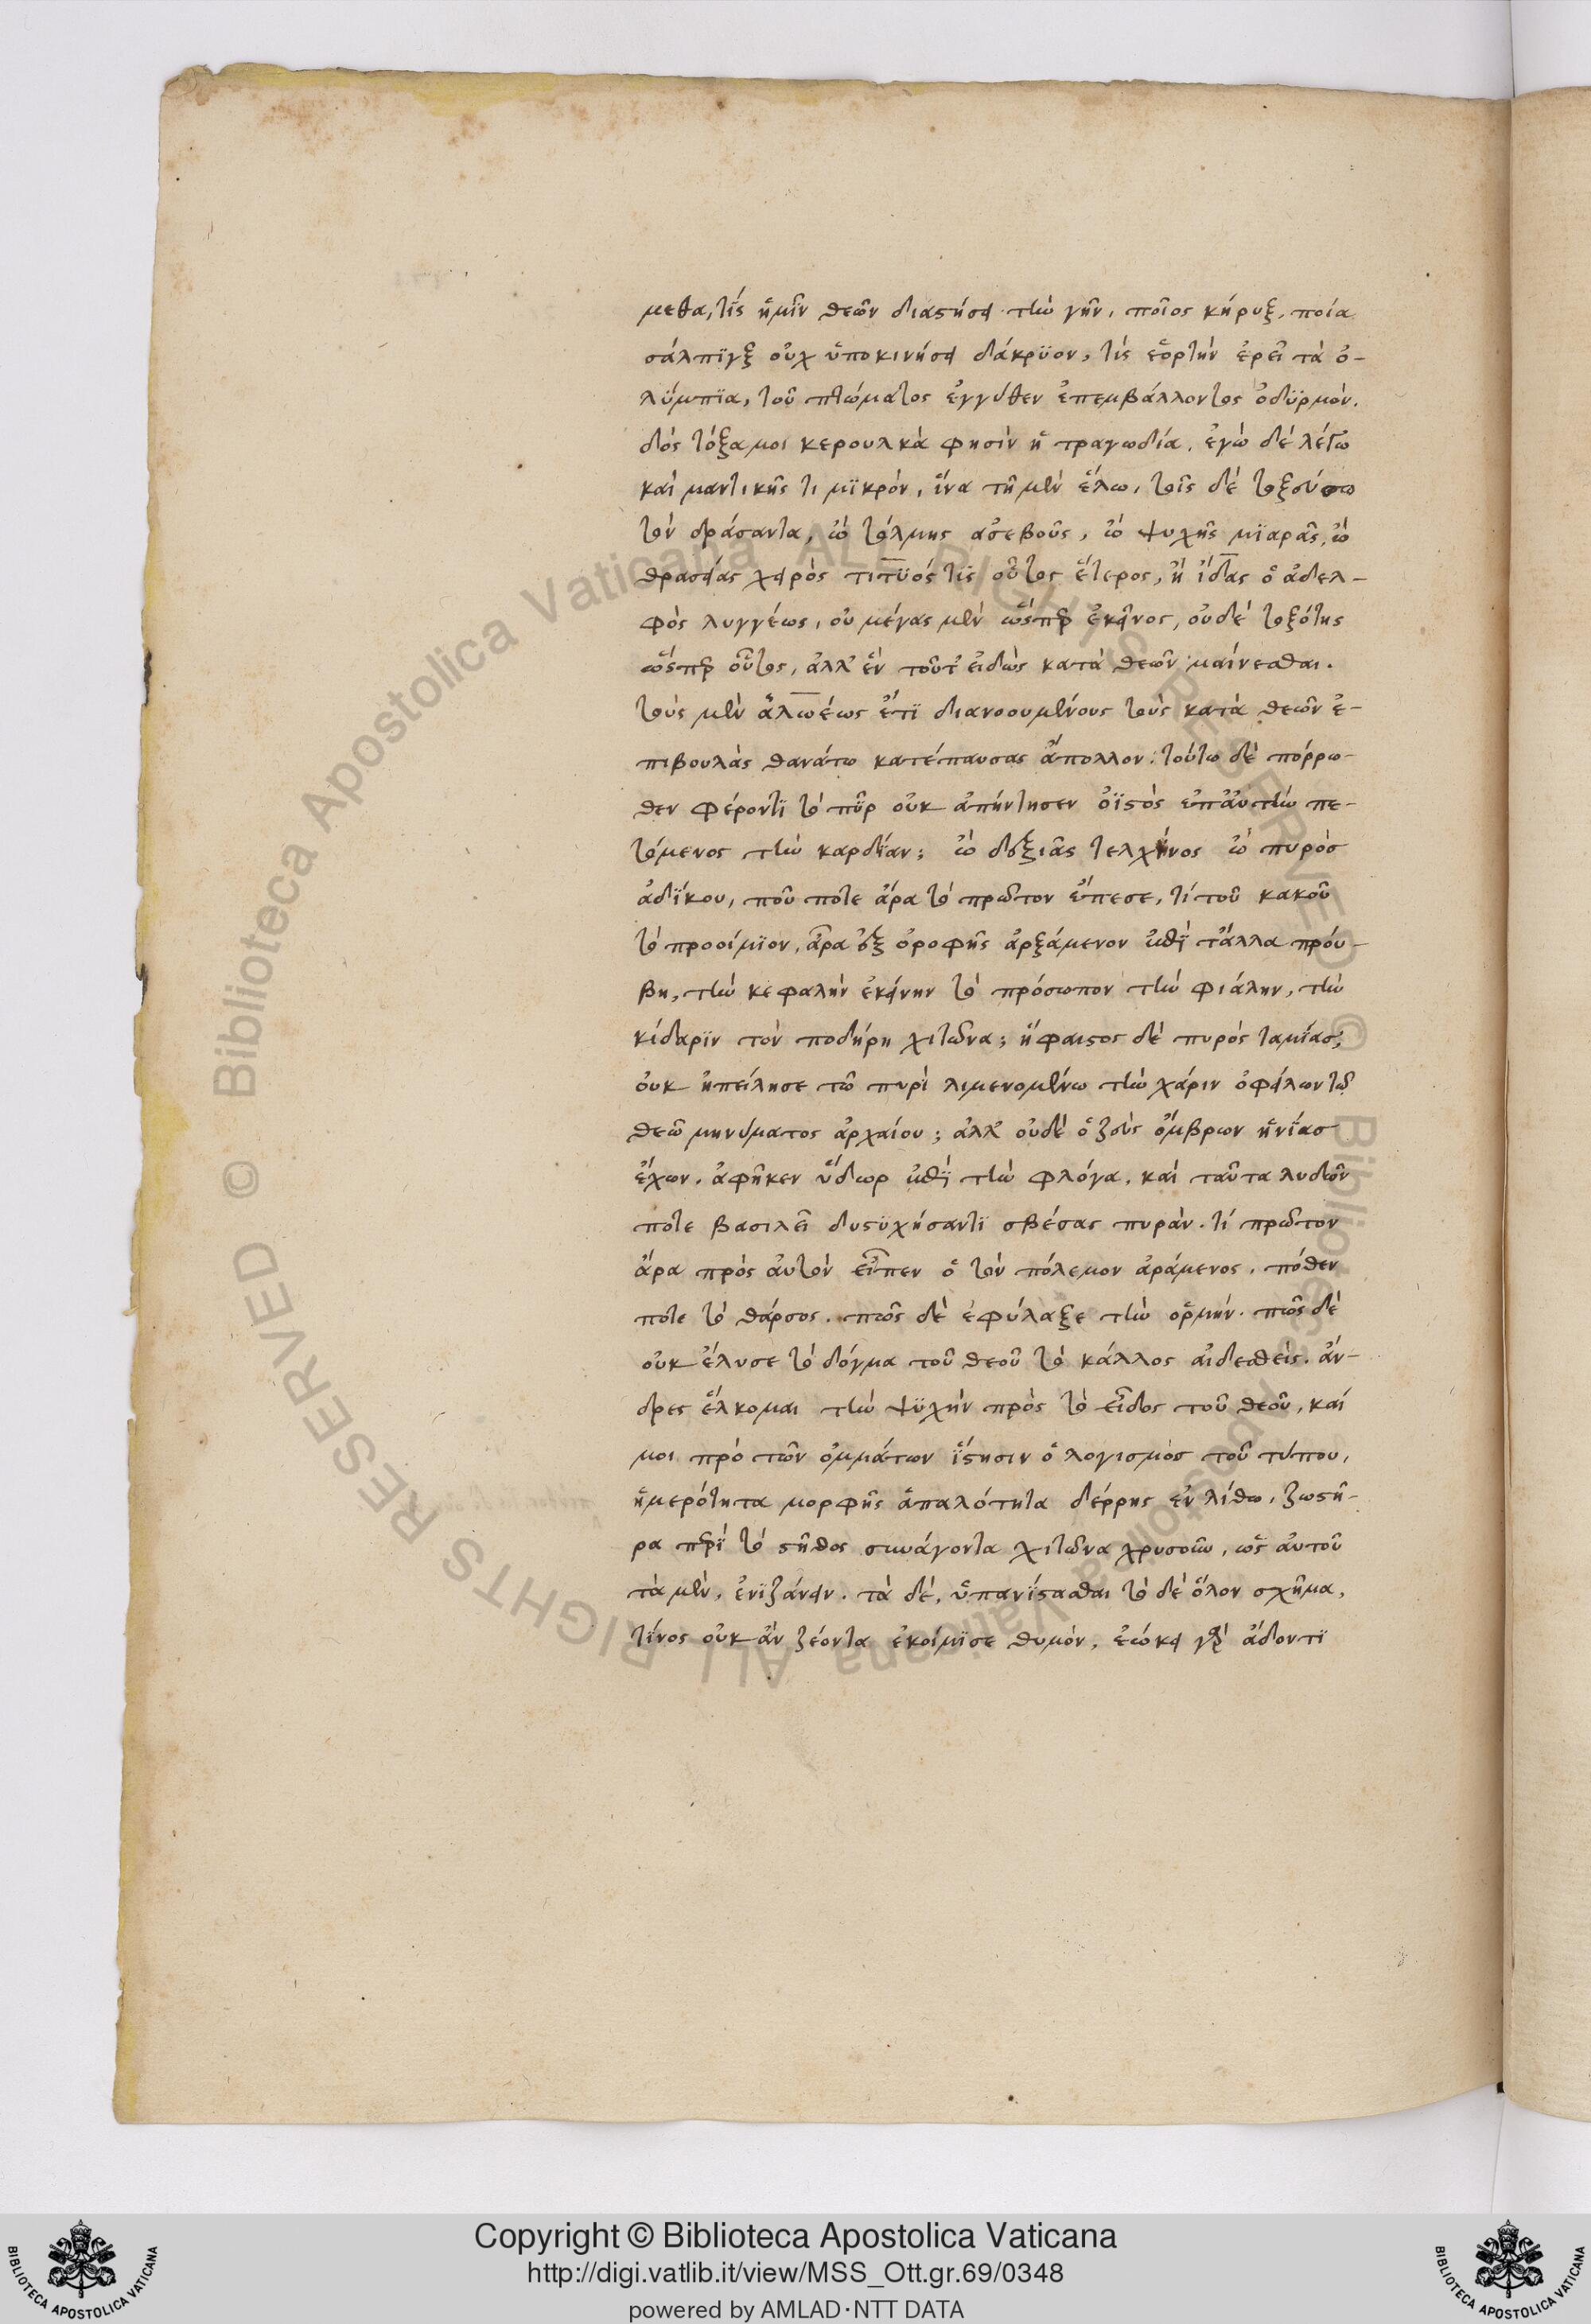 μεθα, τίς ἡμῖν θεῶν διαστήσει τὴν γῆν, ποῖος κήρυξ, ποία
σάλπϊγξ οὐχ ὑποκινήσει δάκρϋον, τίς ἑορτὴν ἐρεῖ τὰ ὀ-
λΰμπϊα, τοῦ πτώματος ἐγγύθεν ἐπεμβάλλοντος ὀδϋρμόν.
δὸς τόξα μοι κερουλκὰ φησὶν ἡ τραγωδία, ἐγὼ δὲ λέγω
καὶ μαντικῆς τι μϊκρόν, ἵνα τῆ μὲν ἕλω, τοῖς δὲ τοξεύσω
τὸν δράσαντα, ὢ τόλμης ἀσεβοῦς, ὢ ψυχῆς μϊαρᾶς, ὢ
θρασείας χειρὸς τιτϋός τϊς οὗτος ἕτερος, ἢ ἴδας ὁ ἀδελ-
φὸς λυγγέως, οὐ μέγας μὲν ὥσπερ ἐκεῖνος, οὐδὲ τοξότης
ὥσπερ οὗτος, ἀλλ' ἓν τοῦτ' εἰδὼς κατὰ θεῶν μαίνεσθαι.
τοὺς μὲν ἁλωέως ἔτϊ διανοουμένους τοὺς κατὰ θεῶν ἐ-
πιβουλὰς θανάτω κατέπαυσας ἄπολλον· τούτω δὲ πόρρω-
θεν φέροντϊ τὸ πῦρ οὐκ ἀπήντησεν ὀϊστὸς ἐπ' ἀυτὴν πε-
τόμενος τὴν καρδΐαν; ὢ δεξιᾶς τελχῖνος ὢ πυρὸσ
ἀδΐκου, ποῦ ποτε ἄρα τὸ πρῶτον ἔπεσε, τί τοῦ κακοῦ
τὸ προοίμϊον, ἆρα ἐξ ὀροφῆς ἀρξάμενον ἐπῒ τἄλλα πρού-
βη, τὴν κεφαλὴν ἐκείνην τὸ πρόσωπον τὴν φιάλην, τὴν
κίδαρϊν τὸν ποδήρη χιτῶνα; ἥφαιστος δὲ πυρὸς ταμΐασ,
οὐκ ἠπείλησε τῶ πυρὶ λιμενομένω τὴν χάριν ὀφείλων τῶ
θεῶ μηνύματος ἀρχαίου; ἀλλ' οὐδὲ ὁ ζεὺς ὄμβρων ἡνΐασ
ἔχων, ἀφῆκεν ὕδωρ ἐπῒ τὴν φλόγα, καὶ ταῦτα λυδῶν
ποτε βασιλεῖ δυστϋχήσαντϊ σβέσας πυράν. τί πρῶτον
ἄρα πρὸς ἀυτὸν εἶπεν ὁ τὸν πόλεμον ἀράμενος, πόθεν
ποτε τὸ θάρσος, πῶς δὲ ἐφύλαξε τὴν ὁρμήν. πῶς δὲ
οὐκ ἔλυσε τὸ δόγμα τοῦ θεοῦ τὸ κάλλος αἰδεσθείς. ἄν-
δρες ἕλκομαι τὴν ψϋχὴν πρὸς τὸ εἶδος τοῦ θεοῦ, καί
μοι πρὸ τῶν ὀμμάτων ΐστησιν ὁ λογισμὸσ τοῦ τύπου,
ἡμερότητα μορφῆς ἁπαλότητα δέρρης ἐν λίθω, ζωστῆ-
ρα περῒ τὸ στῆθος συνάγοντα χιτῶνα χρυσοῦν, ὡς ἀυτοῦ
τὰ μὲν, ἐνϊζάνειν. τὰ δὲ, ὑπανΐστασθαι τὸ δὲ ὅλον σχῆμα,
τΐνος οὐκ ἂν ζέοντα ἐκοίμϊσε θυμόν, ἐώκει γὰρ ἄδοντϊ
Copyright © Biblioteca Apostolica Vaticana
http://digi.vatlib.it/view/MSS_Ott.gr.69/0348
powered by AMLAD·NTT DATA
BIBLIOTECA APOSTOLICA VATICANA
BIBLIOTECA APOSTOLICA VATICANA
© Biblioteca Apostolica Vaticana ALL RIGHTS RESERVED
© Biblioteca Apostolica Vaticana ALL RIGHTS RESERVED